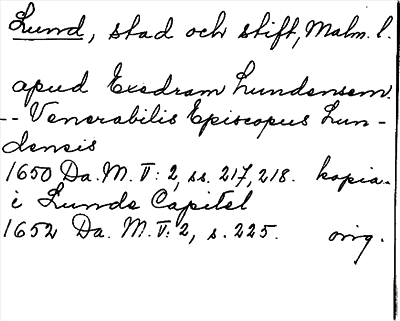 Lund, stad och stift, Malm. l.
apud Exedram Lundensem.
-- Venerabilis Episcopus Lun-
densis
1650 Da. M. V: 2, ss. 217, 218. kopia.
i Lunds Capitel
1652 Da. M. V: 2, s. 225. orig.